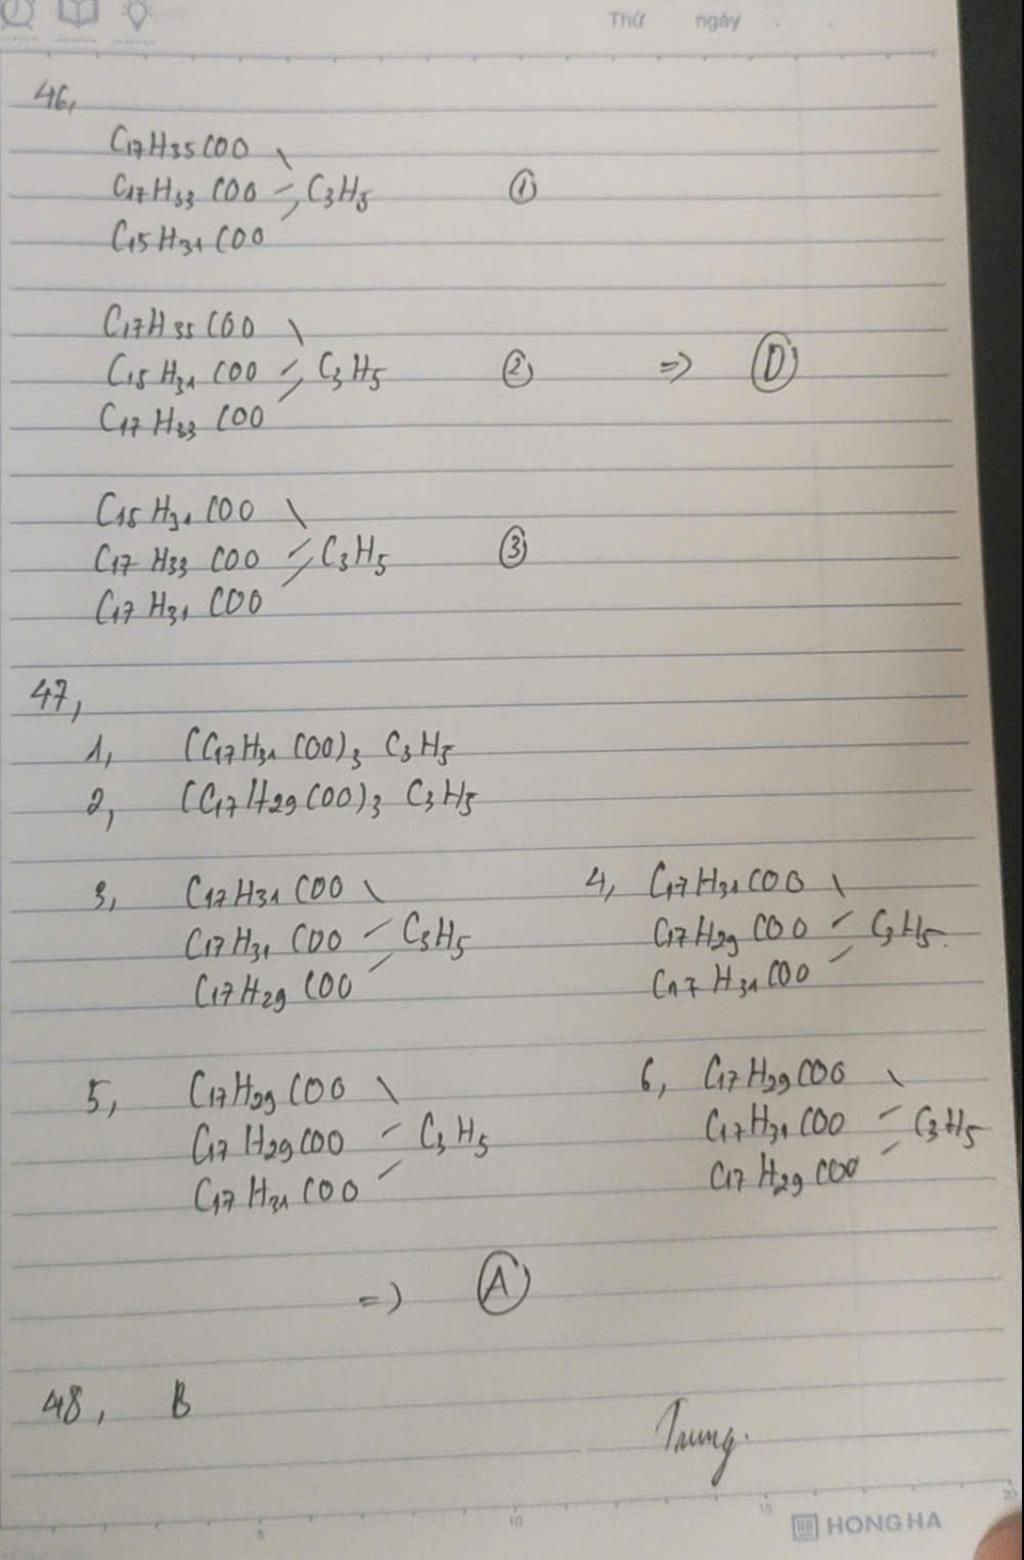 Thứ ngày
46,
C17H35COO \
C17H33COO - C3H5 ①
C15H31COO
C17H35COO \
C15H31COO - C3H5 ② => Ⓓ
C17H33COO
C15H31COO \
C17H33COO - C3H5 ③
C17H31COO
47,
1, (C17H31COO)3 C3H5
2, (C17H29COO)3 C3H5
3, C17H31COO \
C17H31COO - C3H5
C17H29COO /
4, C17H31COO \
C17H29COO - C3H5.
C17H31COO /
5, C17H29COO \
C17H29COO - C3H5
C17H31COO /
6, C17H29COO \
C17H31COO - C3H5
C17H29COO /
=> Ⓐ
48, B
Trung.
5 10 15 20
HONG HA